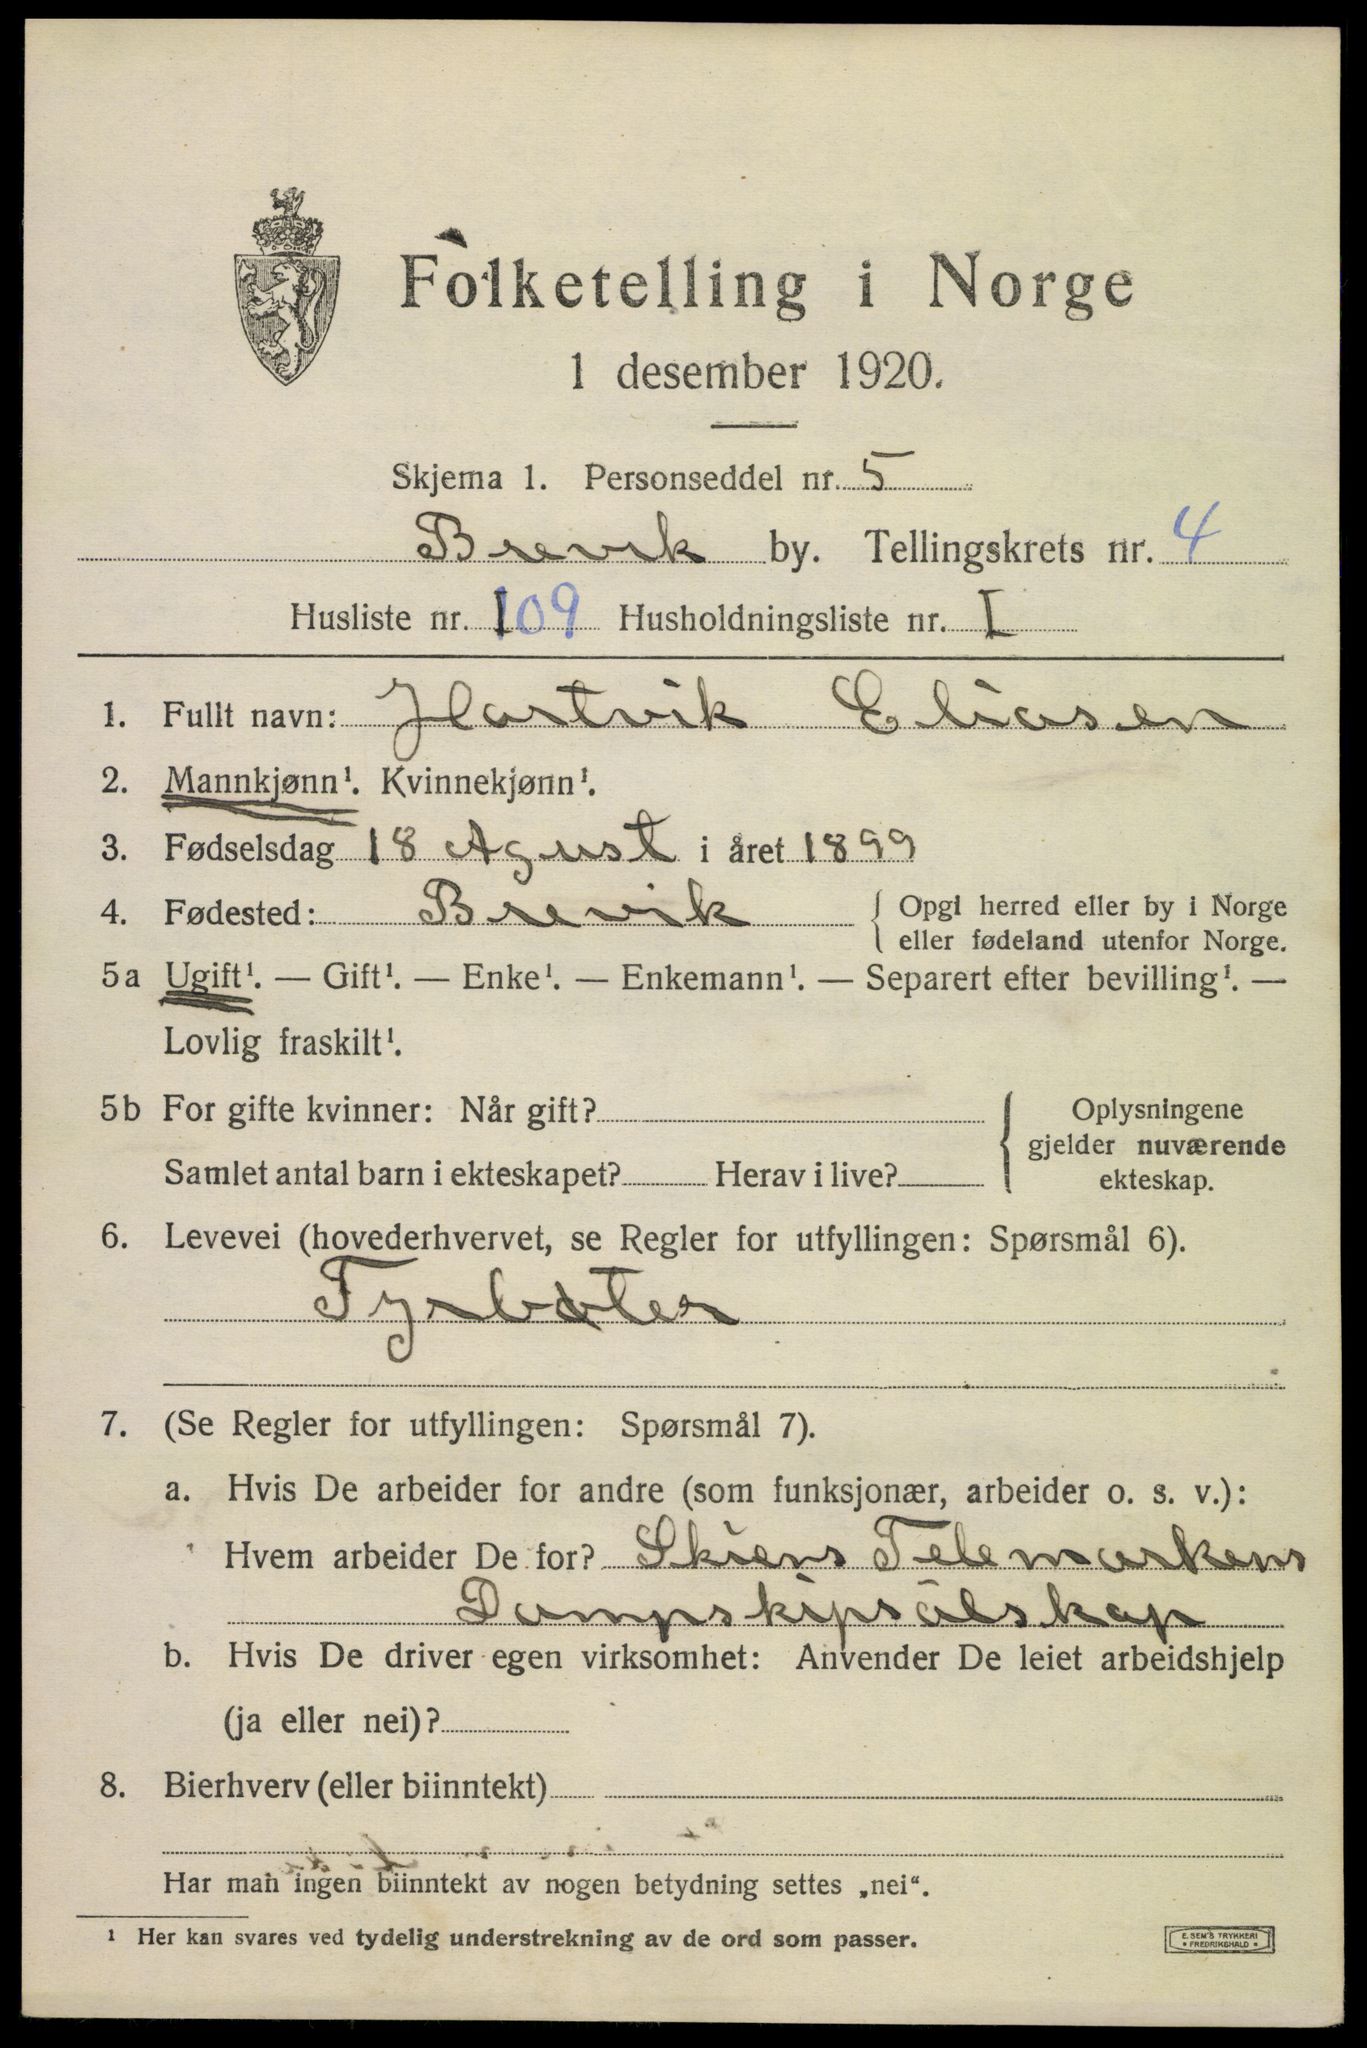 Folketelling i Norge
1 desember 1920.
Skjema 1. Personseddel nr. 5
Brevik by. Tellingskrets nr. 4
Husliste nr. 109 Husholdningsliste nr. I
1. Fullt navn: Hartvik Eliasen
2. Mannkjønn¹. Kvinnekjønn¹.
3. Fødselsdag 18 Agust i året 1899
4. Fødested: Brevik { Opgi herred eller by i Norge
eller fødeland utenfor Norge.
5a Ugift¹. — Gift¹. — Enke¹. — Enkemann¹. — Separert efter bevilling¹. —
Lovlig fraskilt¹.
5b For gifte kvinner: Når gift? { Oplysningene
gjelder nuværende
Samlet antal barn i ekteskapet? Herav i live? ekteskap.
6. Levevei (hovederhvervet, se Regler for utfyllingen: Spørsmål 6).
Fyrbøter
7. (Se Regler for utfyllingen: Spørsmål 7).
a. Hvis De arbeider for andre (som funksjonær, arbeider o. s. v.):
Hvem arbeider De for? Skiens Telemarkens
Dampskipsälskap
b. Hvis De driver egen virksomhet: Anvender De leiet arbeidshjelp
(ja eller nei)?
8. Bierhverv (eller biinntekt)
Har man ingen biinntekt av nogen betydning settes „nei“.
¹ Her kan svares ved tydelig understrekning av de ord som passer.
E. SEM'S TRYKKERI
• FREDRIKSHALD •